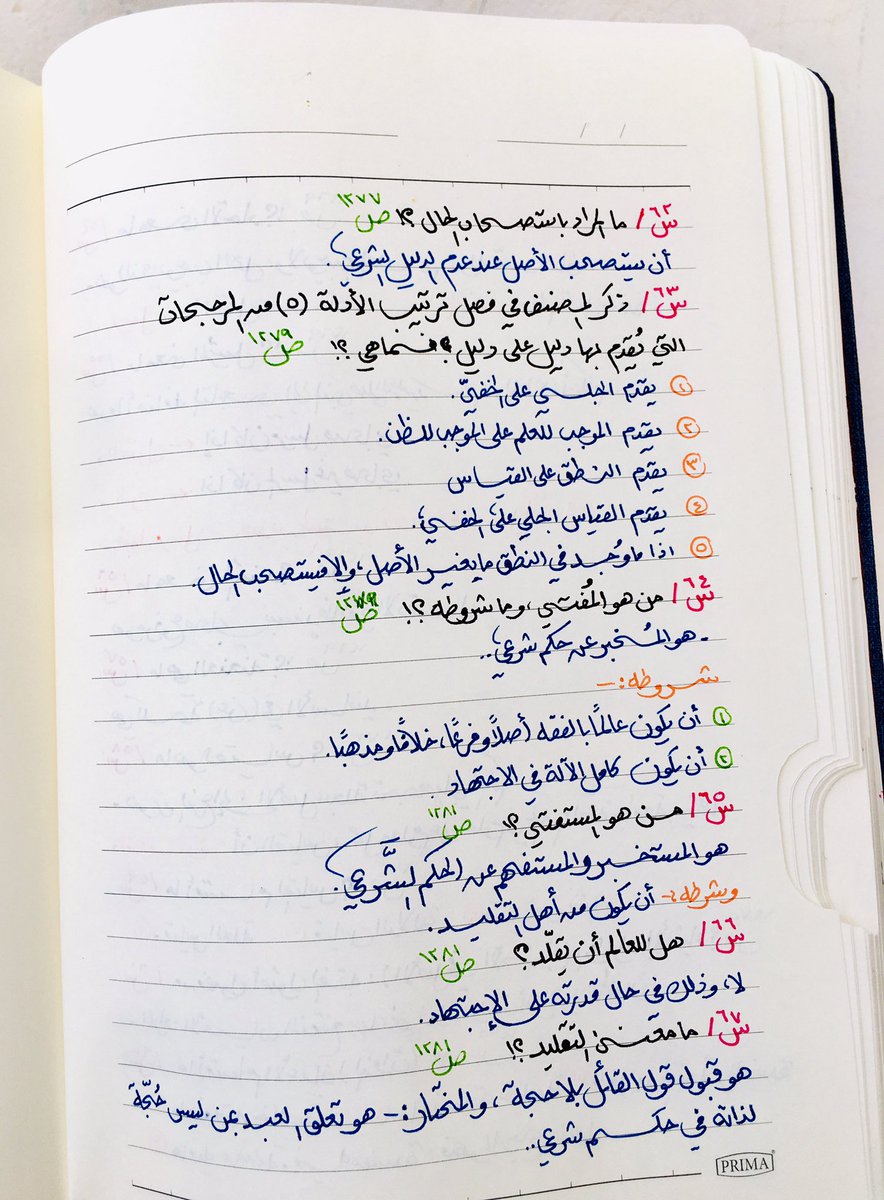 س٦٢/ ما المراد باستصحاب الحال ؟! ص١٢٧٧
أن يستصحب الأصل عند عدم الدليل الشرعي.
س٦٣/ ذكر المصنف في فصل ترتيب الأدلة (٥) من المرجحات
التي يُقدم بها دليل على دليل ؟ فما هي ؟! ص١٢٧٩
١ يقدم الجلي على الخفيّ.
٢ يقدم الموجب للعلم على الموجب للظن.
٣ يقدم النطق على القياس
٤ يقدم القياس الجلي على الخفي.
٥ اذا ما وُجد في النطق ما يغير الأصل، وإلا فيستصحب الحال.
س٦٤/ من هو المُفتي، وما شروطه ؟! ص
- هو المُخبر عن حكم شرعي..
شروطه :-
١ أن يكون عالمًا بالفقه أصلًا وفرعًا، خلافًا ومذهبًا.
٢ أن يكون كامل الآلة في الاجتهاد.
س٦٥/ من هو المستفتي ؟! ص١٢٨١
هو المستخبر والمستفهم عن الحكم الشَّرعي.
وشرطه :- أن يكون من أهل التقليد.
س٦٦/ هل للعالم أن يقلّد ؟ ص١٢٨١
لا، وذلك في حال قدرته على الإجتهاد.
س٦٧/ ما معنى التقليد ؟! ص١٢٨١
هو قبول قول القائل بلا حجة، والمختار :- هو تعلق العبد بمن ليس حُجّة
لذاته في حكم شرعي..
PRIMA